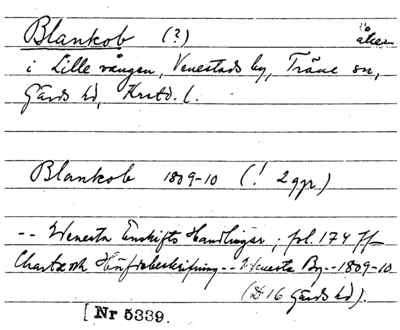 Blankob (?) åker
i Lille vången, Venestads by, Träne sn,
Gärds hd, Krstd. l.
Blankob 1809-10 (! 2 ggr.)
-- Wenesta Enskifts Handlingar; fol. 174 ff
Charta och Häfdebeskrifning -- Wenesta By -- 1809-10
(D 16 Gärds hd).
[Nr 5339.